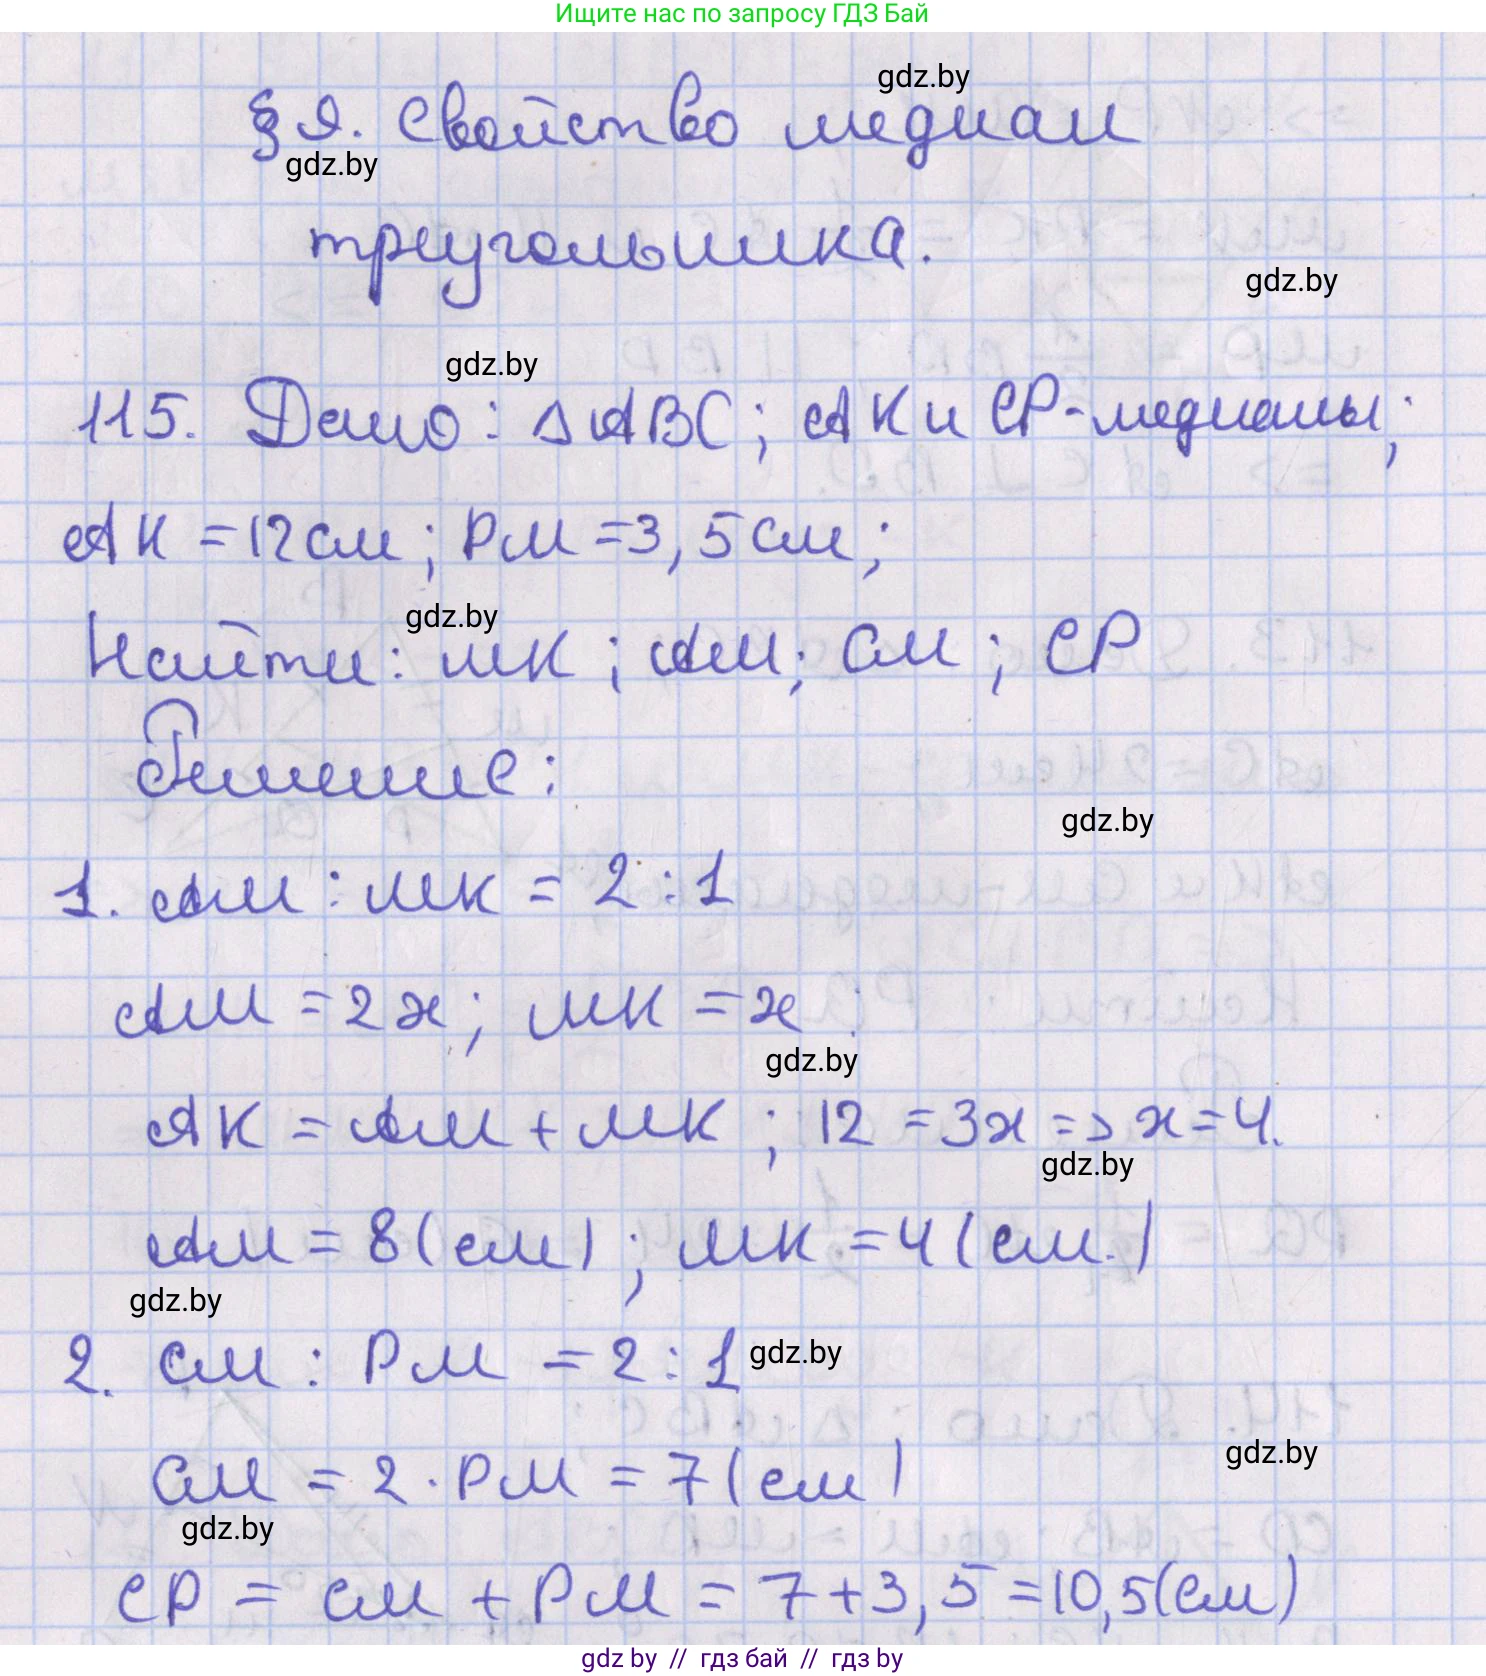 Ищите нас по запросу ГДЗ Бай
gdz.by
§ 9. Свойство медиан
gdz.by
треугольника.
gdz.by
gdz.by
115. Дано: △ABC; AK и CP-медианы;
AK = 12 см; PM = 3,5 см;
gdz.by
Найти: MK; AM; CM; CP
Решение:
gdz.by
1. AM : MK = 2 : 1
AM = 2x; MK = x
gdz.by
AK = AM + MK; 12 = 3x => x = 4.
gdz.by
AM = 8 (см); MK = 4 (см.)
gdz.by
2. CM : PM = 2 : 1
gdz.by
gdz.by
CM = 2 · PM = 7 (см)
gdz.by
CP = CM + PM = 7 + 3,5 = 10,5 (см)
gdz by // гдз бай // гдз by